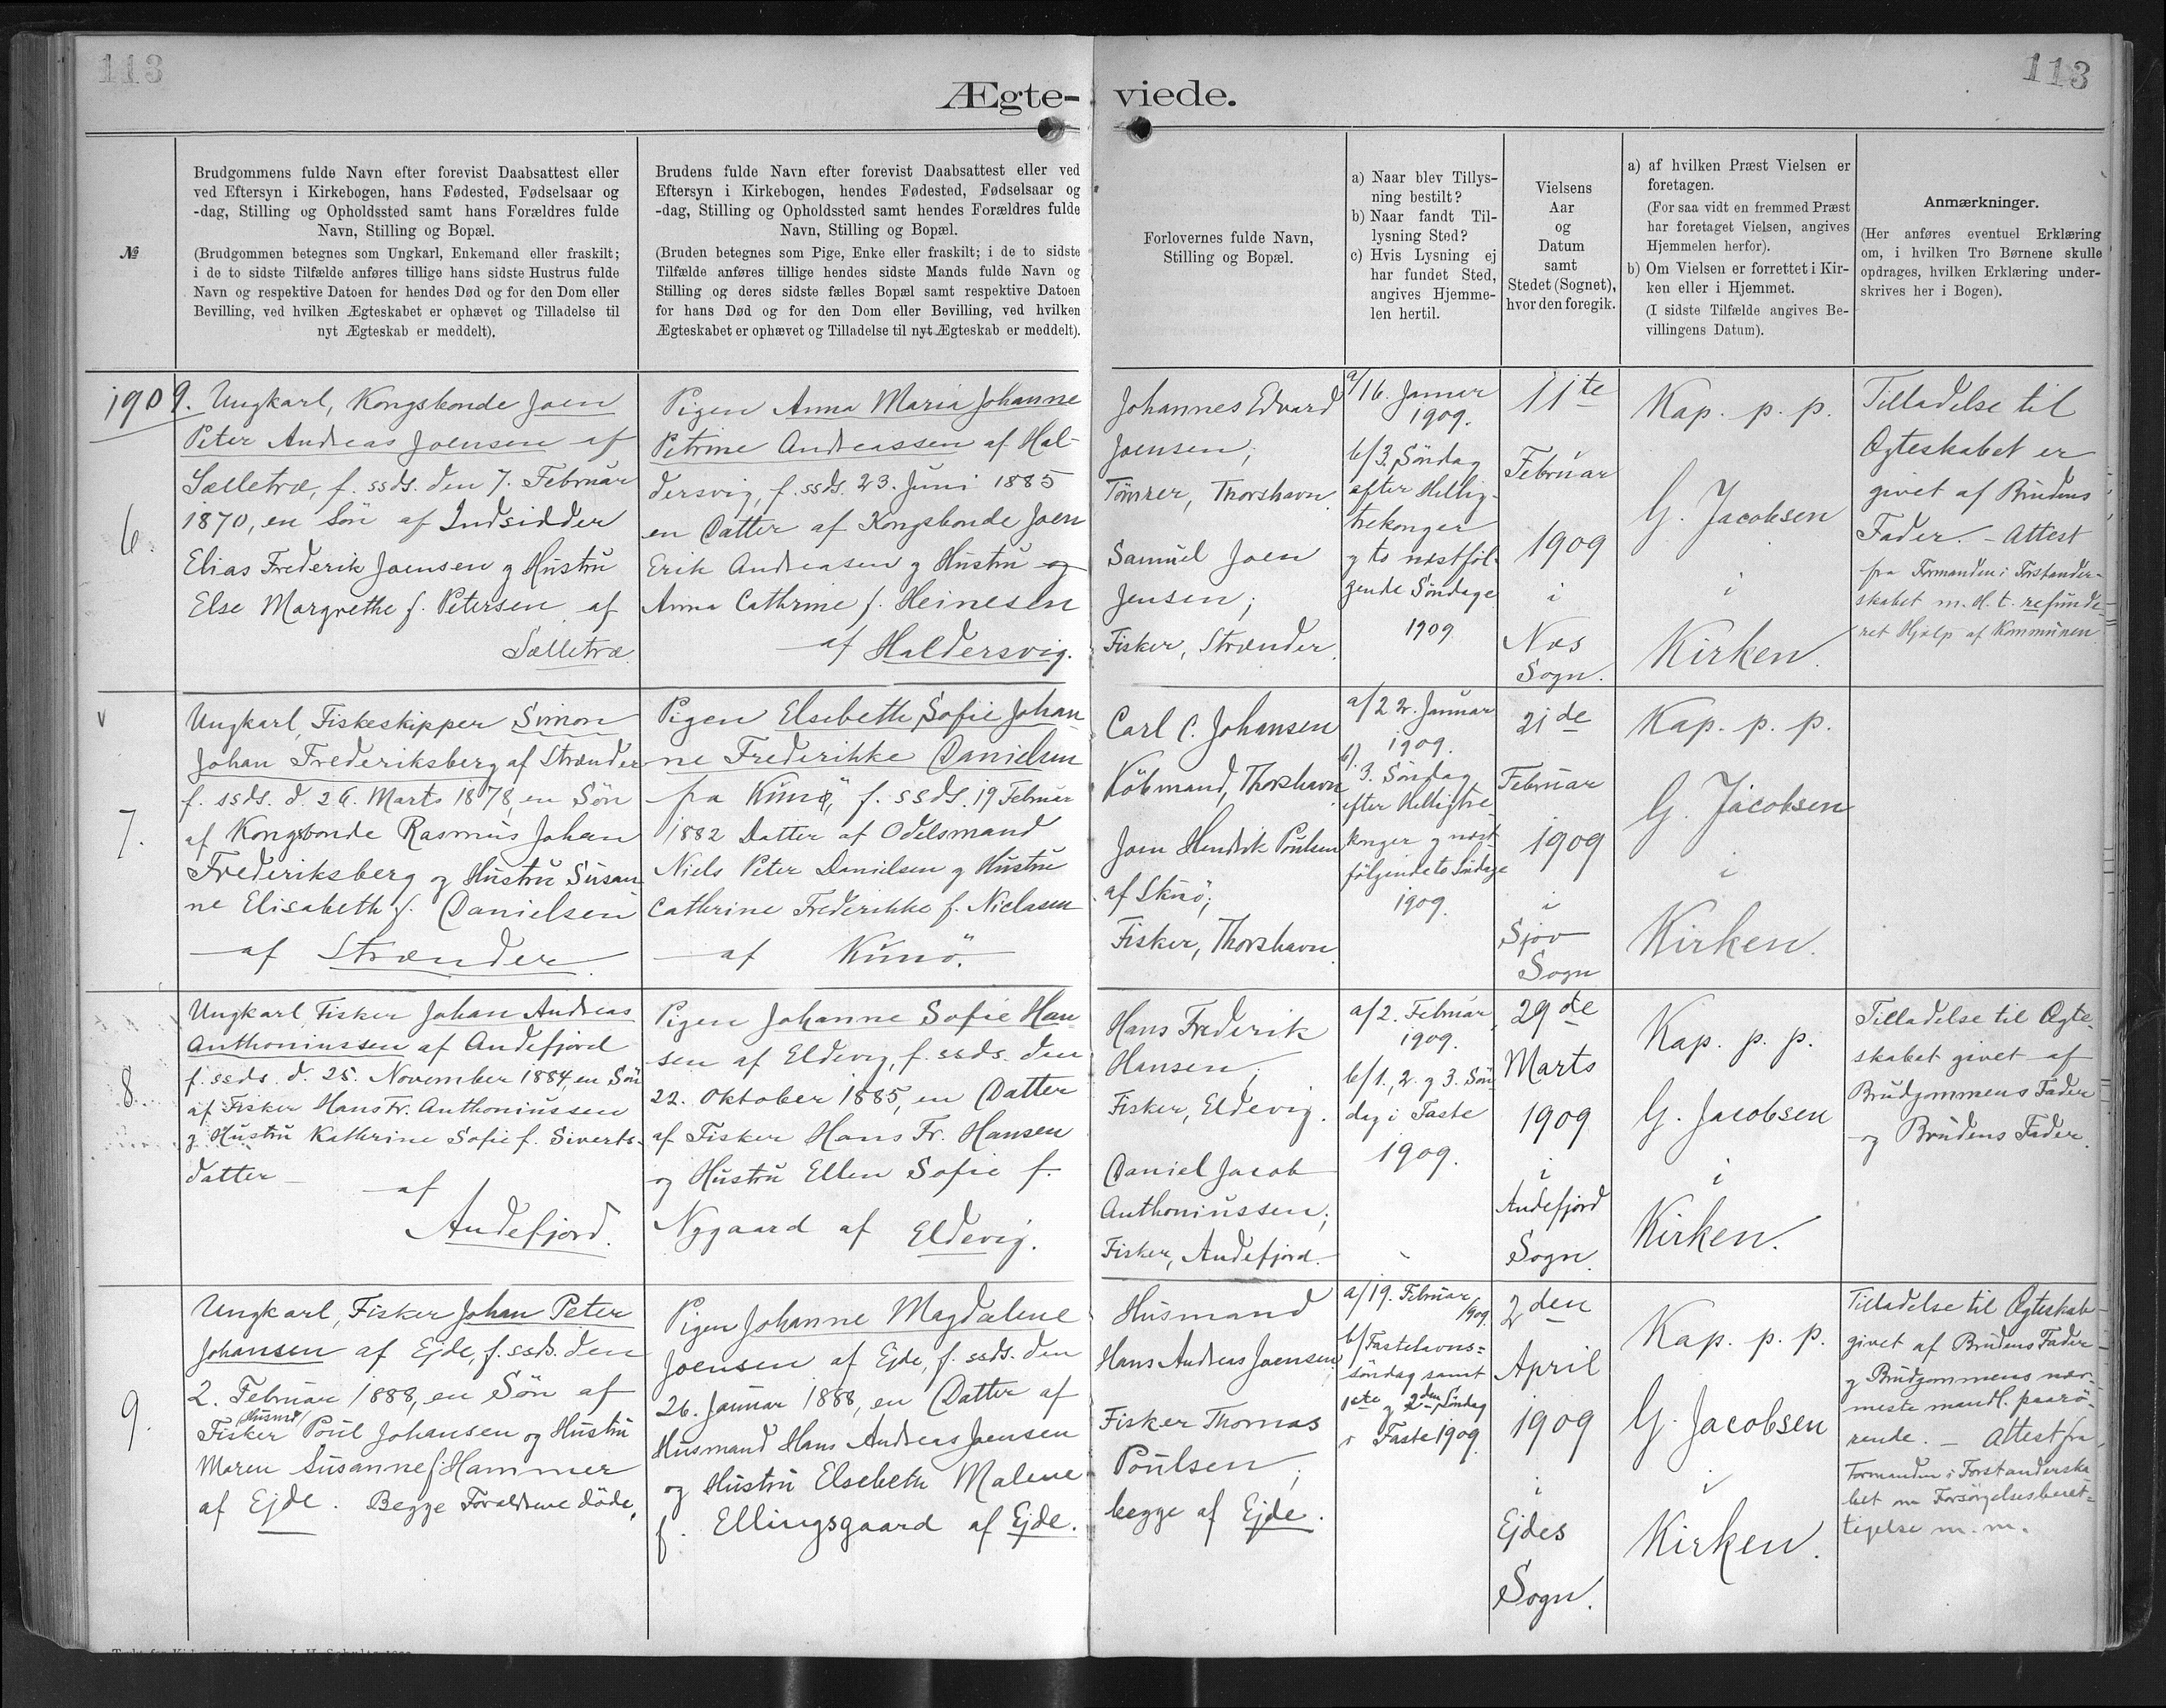 113
113
Ægte-
viede.
№
Brudgommens fulde Navn efter forevist Daabsattest eller
ved Eftersyn i Kirkebogen, hans Fødested, Fødselsaar og
-dag, Stilling og Opholdssted samt hans Forældres fulde
Navn, Stilling og Bopæl.
(Brudgommen betegnes som Ungkarl, Enkemand eller fraskilt;
i de to sidste Tilfælde anføres tillige hans sidste Hustrus fulde
Navn og respektive Datoen for hendes Død og for den Dom eller
Bevilling, ved hvilken Ægteskabet er ophævet og Tilladelse til
nyt Ægteskab er meddelt).
Brudens fulde Navn efter forevist Daabsattest eller ved
Eftersyn i Kirkebogen, hendes Fødested, Fødselsaar og
-dag, Stilling og Opholdssted samt hendes Forældres fulde
Navn, Stilling og Bopæl.
(Bruden betegnes som Pige, Enke eller fraskilt; i de to sidste
Tilfælde anføres tillige hendes sidste Mands fulde Navn og
Stilling og deres sidste fælles Bopæl samt respektive Datoen
for hans Død og for den Dom eller Bevilling, ved hvilken
Ægteskabet er ophævet og Tilladelse til nyt Ægteskab er meddelt).
Forlovernes fulde Navn,
Stilling og Bopæl.
a) Naar blev Tillys-
ning bestilt?
b) Naar fandt Til-
lysning Sted?
c) Hvis Lysning ej
har fundet Sted,
angives Hjemme-
len hertil.
Vielsens
Aar
og
Datum
samt
Stedet (Sognet),
hvor den foregik.
a) af hvilken Præst Vielsen er
foretagen.
(For saa vidt en fremmed Præst
har foretaget Vielsen, angives
Hjemmelen herfor).
b) Om Vielsen er forrettet i Kir-
ken eller i Hjemmet.
(I sidste Tilfælde angives Be-
villingens Datum).
Anmærkninger.
(Her anføres eventuel Erklæring
om, i hvilken Tro Børnene skulle
opdrages, hvilken Erklæring under-
skrives her i Bogen).
1909.
6.
Ungkarl, Kongsbonde Joen
Peter Andreas Joensen af
Sælletræ, f. ssds. den 7. Februar
1870, en Søn af Indsidder
Elias Frederik Joensen g Hustru
Else Margrethe f. Petersen af
Sælletræ
Pigen Anna Maria Johanne
Petrine Andreassen af Hal-
dersvig, f. ssds. 23. Juni 1885
en Datter af Kongsbonde Joen
Erik Andreasen g Hustru og
Anna Cathrine f. Heinesen
af Haldersvig.
Johannes Edvard
Joensen;
Tömrer, Thorshavn
Samuel Joen
Jensen;
Fisker, Strænder.
a/16. Januar
1909.
b/3. Söndag
efter Hellig-
trekonger
g to næstföl-
gende Söndage
1909
11te
Februar
1909
i
Næs
Sogn.
Kap. p. p.
G. Jacobsen
i
Kirken.
Tilladelse til
Ægteskabet er
givet af Brudens
Fader. - Attest
fra Formanden i Forstander-
skabet m. H. t. refunde-
ret Hjælp af Kommunen
v
7.
Ungkarl, Fiskeskipper Simon
Johan Frederiksberg af Strænder
f. ssds. d. 26. Marts 1878, en Søn
af Kongsbonde Rasmus Johan
Frederiksberg og Hustru Susan
ne Elisabeth f. Danielsen
af Strænder.
Pigen Elsebeth Sofie Johan
ne Frederikke Danielsen
fra Kunö, f. ssds. 19 Februar
1882 Datter af Odelsmand
Niels Peter Danielsen g Hustru
Cathrine Frederikke f. Niclasen
af Kunö.
Carl C. Johansen
Köbmand, Thorshavn
Joen Hendrik Poulsen
af Skuö;
Fisker, Thorshavn.
a/22. Januar
1909.
b). 3. Söndag
efter Helligtre-
konger g næst
fölgende to Söndage
1909.
21de
Februar
1909
i
Sjov
Sogn
Kap. p. p.
G. Jacobsen
i
Kirken.
8.
Ungkarl, Fisker Johan Andreas
Anthoniussen af Andefjord
f. ssds. d. 25. November 1884, en Søn
af Fisker Hans Fr. Anthoniussen
g Hustru Kathrine Sofie f. Siverts-
datter
af
Andefjord.
Pigen Johanne Sofie Han-
sen af Eldevig, f. ssds. den
22. Oktober 1885, en Datter
af Fisker Hans Fr. Hansen
og Hustru Ellen Sofie f.
Nygaard af Eldevig.
Hans Frederik
Hansen;
Fisker, Eldevig.
Daniel Jacob
Anthoniussen;
Fisker, Andefjord.
a/2. Februar
1909.
b/1., 2. g 3. Sön
dag i Faste
1909.
29de
Marts
1909
i
Andefjord
Sogn.
Kap. p. p.
G. Jacobsen
i
Kirken.
Tilladelse til Ægte-
skabet givet af
Brudgommens Fader
og Brudens Fader.
9.
Ungkarl, Fisker Johan Peter
Johansen af Ejde, f. ssds. den
2. Februar 1888, en Søn af
/Husmd/
Fisker Poul Johansen og Hustru
Maren Susanne f. Hammer
af Ejde. Begge Forældrene döde.
Pigen Johanne Magdalene
Joensen af Ejde, f. ssds. den
26. Januar 1888, en Datter af
Husmand Hans Andreas Joensen
og Hustru Elsebeth Malene
f. Ellingsgaard af Ejde.
Husmand
Hans Andreas Joensen
Fisker Thomas
Poulsen;
begge af Ejde.
a/19. Februar
1909.
b/Fastelavns-
söndag samt
1ste g 2den Söndag
i Faste 1909.
2den
April
1909
i
Ejdes
Sogn.
Kap. p. p.
G. Jacobsen
i
Kirken.
Tilladelse til Ægteskab
givet af Brudens Fader
g Brudgommens nær-
meste mandl. paarö-
rende. - Attest fra
Formanden i Forstanderska
bet om Forsörgelsesberet-
tigelse m. m.